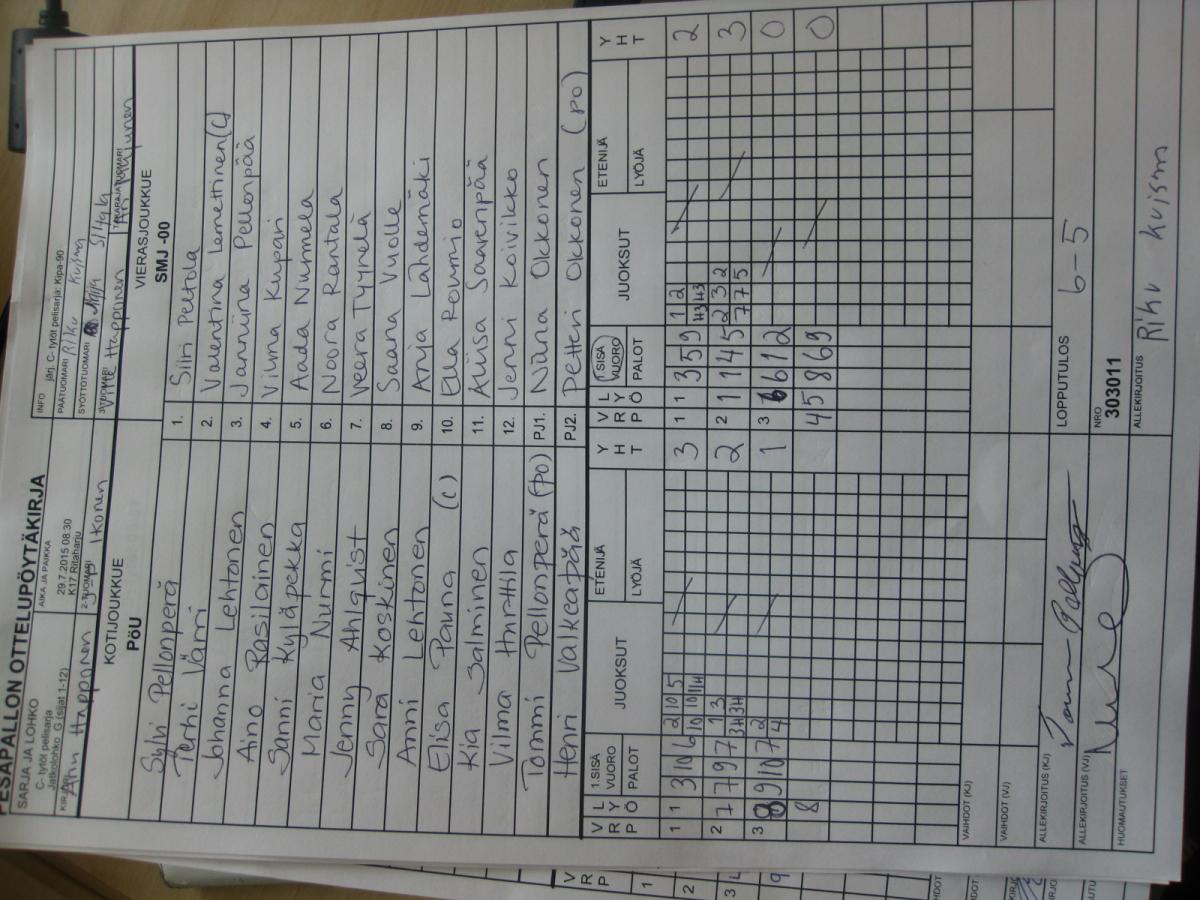 PESÄPALLON OTTELUPÖYTÄKIRJA
SARJA JA LOHKO
AIKA JA PAIKKA
INFO järj. C-tytöt pelisarja: Kipa-90
C- tytöt pelisarja
Jatkolohko G (sijat 1-12)
29.7.2015 08:30
K17 Ritaharju
PÄÄTUOMARI Riku Kuisma
SYÖTTÖTUOMARI
KIRJURI Anu Happonen
2-TUOMARI Ikonen
3-TUOMARI Ville Happonen
TAKARAJATUOMARI
KOTIJOUKKUE
PöU
VIERASJOUKKUE
SMJ -00
Sylvi Pellonperä 1. Siiri Peltola
Terhi Värri 2. Valentina Lemettinen (C)
Johanna Lehtonen 3. Janniina Pellonpää
Aino Rasilainen 4. Vilma Kupari
Sanni Kyläpekka 5. Aada Nurmela
Maria Nurmi 6. Noora Rantala
Jenny Ahlqvist 7. Veera Tyynelä
Sara Koskinen 8. Saana Vuolle
Anni Lehtonen 9. Anja Lähdemäki
Elisa Pauna (c) 10. Ella Roumio
Kia Salminen 11. Aliisa Saarenpää
Vilma Hurttila 12. Jenni Koivikko
Tommi Pellonperä (po) PJ1. Niina Okkonen
Henri Valkeapää PJ2. Petteri Okkonen (po)
VRP LYÖ 1.SISÄVUORO PALOT JUOKSUT ETENIJÄ LYÖJÄ YHT
VRP LYÖ 1.SISÄVUORO PALOT JUOKSUT ETENIJÄ LYÖJÄ YHT
1 1 3 10 6 2 10 5 3
1 1 3 5 9 1 2 2
2 7 7 9 7 1 3 2
2 1 1 4 5 2 3 2 7 7 5 3
3 8 9 10 7 2 4 1
3 6 6 1 2 0
8
4 5 8 6 9 0
VAIHDOT (KJ)
VAIHDOT (VJ)
ALLEKIRJOITUS (KJ)
LOPPUTULOS 6-5
ALLEKIRJOITUS (VJ)
NRO
303011
HUOMAUTUKSET
ALLEKIRJOITUS
Riku Kuisma